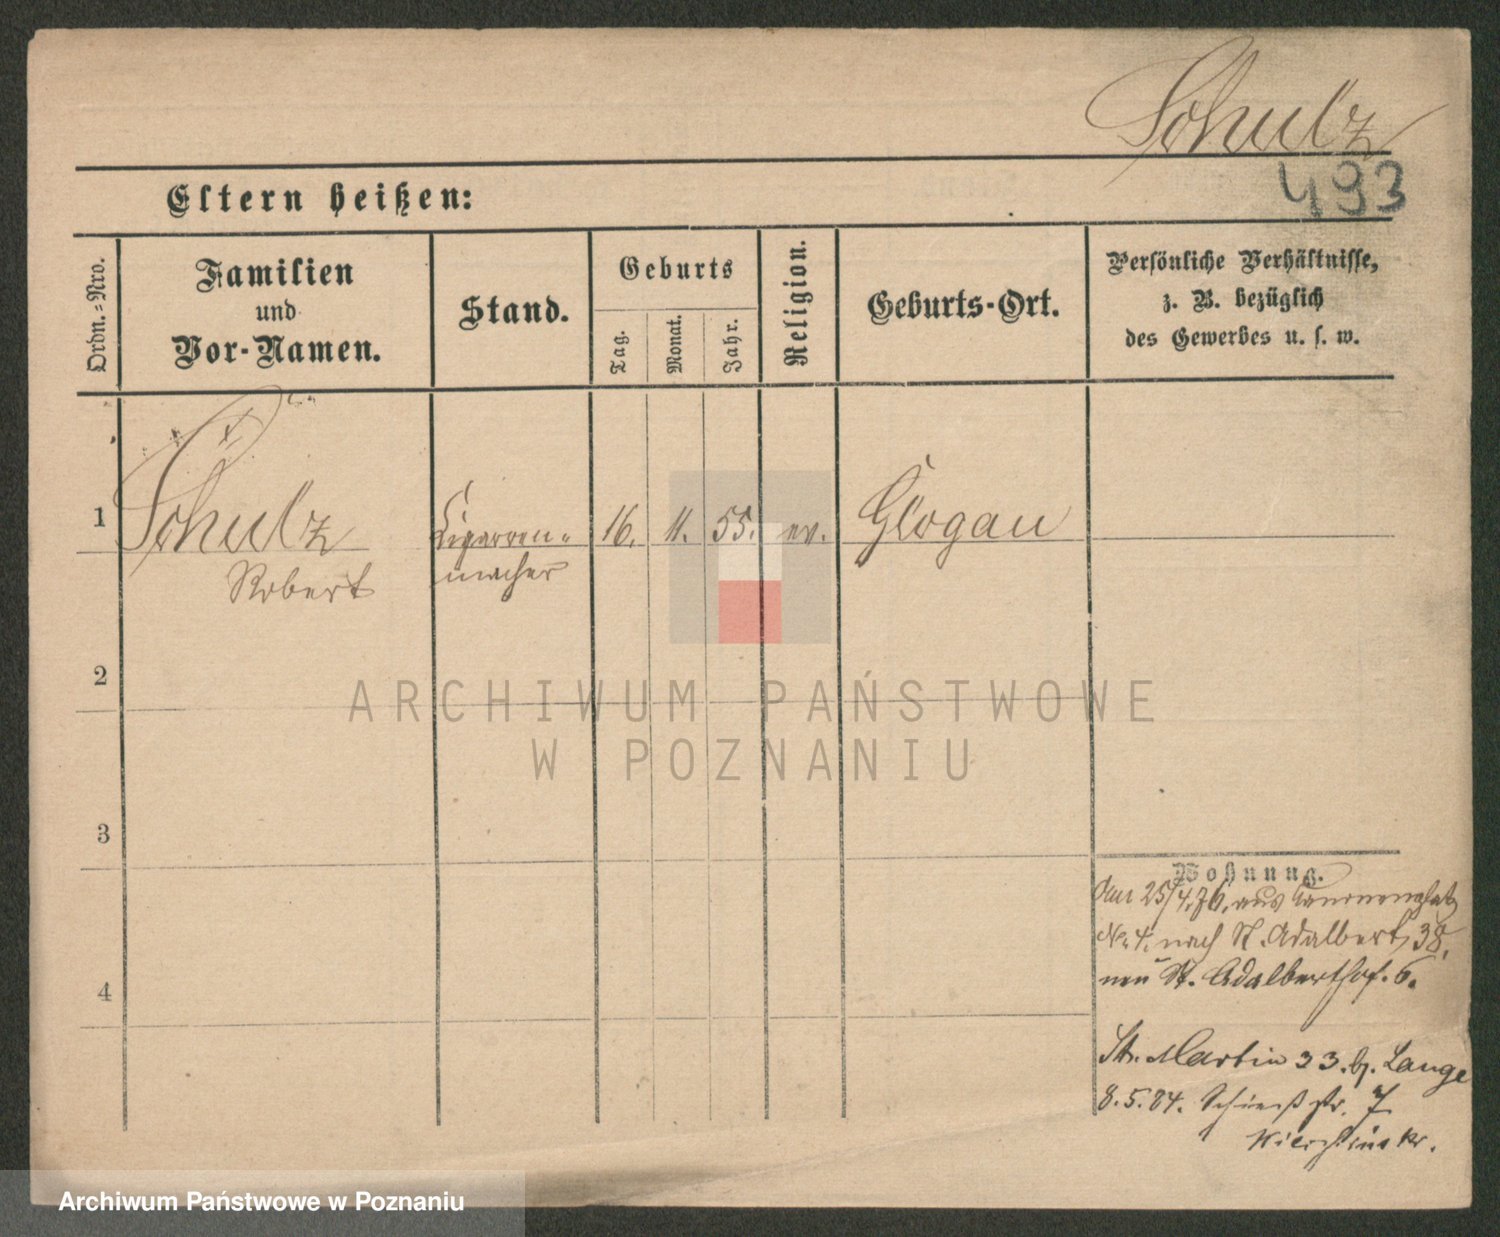 Schulz
493
Eltern heißen:
Ordn.-Nro.
Familien
und
Vor-Namen.
Stand.
Geburts
Tag.
Monat.
Jahr.
Religion.
Geburts-Ort.
Persönliche Verhältnisse,
z. B. bezüglich
des Gewerbes u. s. w.
1
Schulz
Robert
Cigarren-
macher
16.
11.
55.
ev.
Glogau
2
ARCHIWUM PAŃSTWOWE
W POZNANIU
3
4
Wohnung.
Am 25/4.76. aus Kanonenplatz
No. 4. nach St. Adalbert, 38.
neu St. Adalberthof. 6.
St. Martin 33. b. Lange
8.5.84. Schießstr. 7
Archiwum Państwowe w Poznaniu